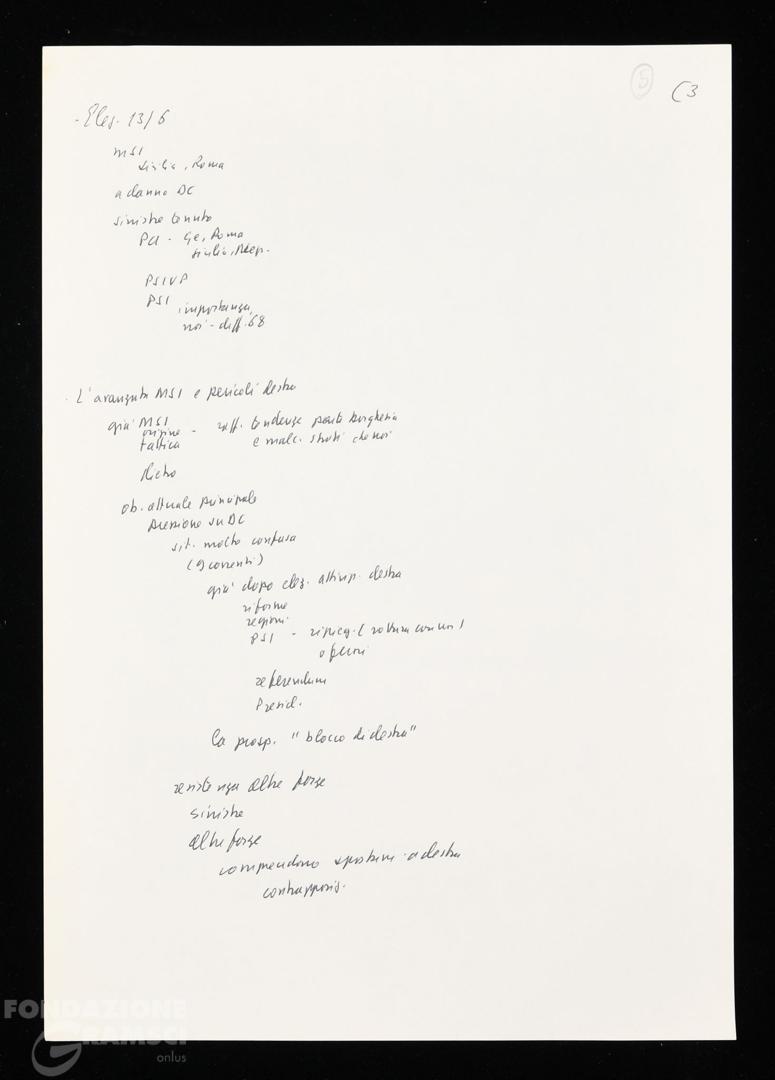 5
C3
- Elez. 13/6
MSI
Sicilia, Roma
a danno DC
sinistre tenuto
PCI - Ge, Roma
Sicilia,
PSIUP
PSI importanza
noi - diff. 68
- L'avanzata MSI e pericoli destra
già MSI
origine - riff. tendenze parte borghesia
tattica e malc. strati che noi
dietro
ob. attuale principale
pressione su DC
sit. molto confusa
(9 correnti)
già dopo elez. destra
riforme
regioni
PSI - ripieg. (rottura con noi)
o fuori
referendum
Presid.
la prosp. "blocco di destra"
resistenza altre forze
sinistre
altre forze
comprendono spostam. a destra
contrappos.
FONDAZIONE
GRAMSCI
onlus